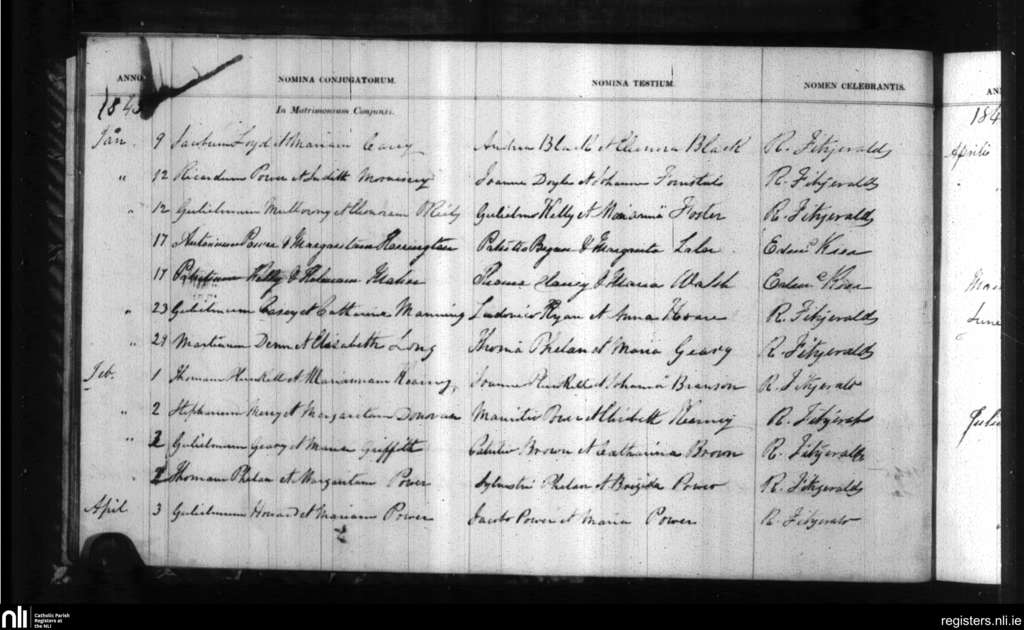 ANNO NOMINA CONJUGATORUM. NOMINA TESTIUM. NOMEN CELEBRANTIS.
184
In Matrimonium Conjunxi.
Jan. 9 Jacobum Loyd et Mariam Carey Andrea Black et Elenora Black R. Fitzgerald
" 12 Ricardum Power et Judith Morrissey Joanne Doyle et Johanna R. Fitzgerald
" 12 Gulielmum et Elenoram O'Reily Gulielmo Kelly et Marianna Foster R. Fitzgerald
17 Power & Margaretam Harrington Patritio & Margarita Lalor Edmd.
17 Kelly & Thoma & Maria Walsh
" 23 Gulielmum Casey et Catherina Manning Ludovico Ryan et Anna Hoare R. Fitzgerald
" 29 Martinum Denn et Elizabeth Long Thoma Phelan et Maria Geary R. Fitzgerald
Feb. 1 Thomam et Mariannam Kearney Joanne et Johanna Branson R. Fitzgerald
" 2 Stephanum et Margaretam Donovan Mauritio Power et Elizabeth Kearney R. Fitzgerald
" 2 Gulielmum Geary et Griffith Patritio Brown et Catharina Brown R. Fitzgerald
" 2 Thomam Phelan et Margaretam Power Sylvestri Phelan et Brigida Power R. Fitzgerald
April 3 Gulielmum Howard et Mariam Power Jacobo Power et Maria Power R. Fitzgerald
AN
184
Aprilis
June
nli Catholic Parish
Registers at
the NLI
registers.nli.ie